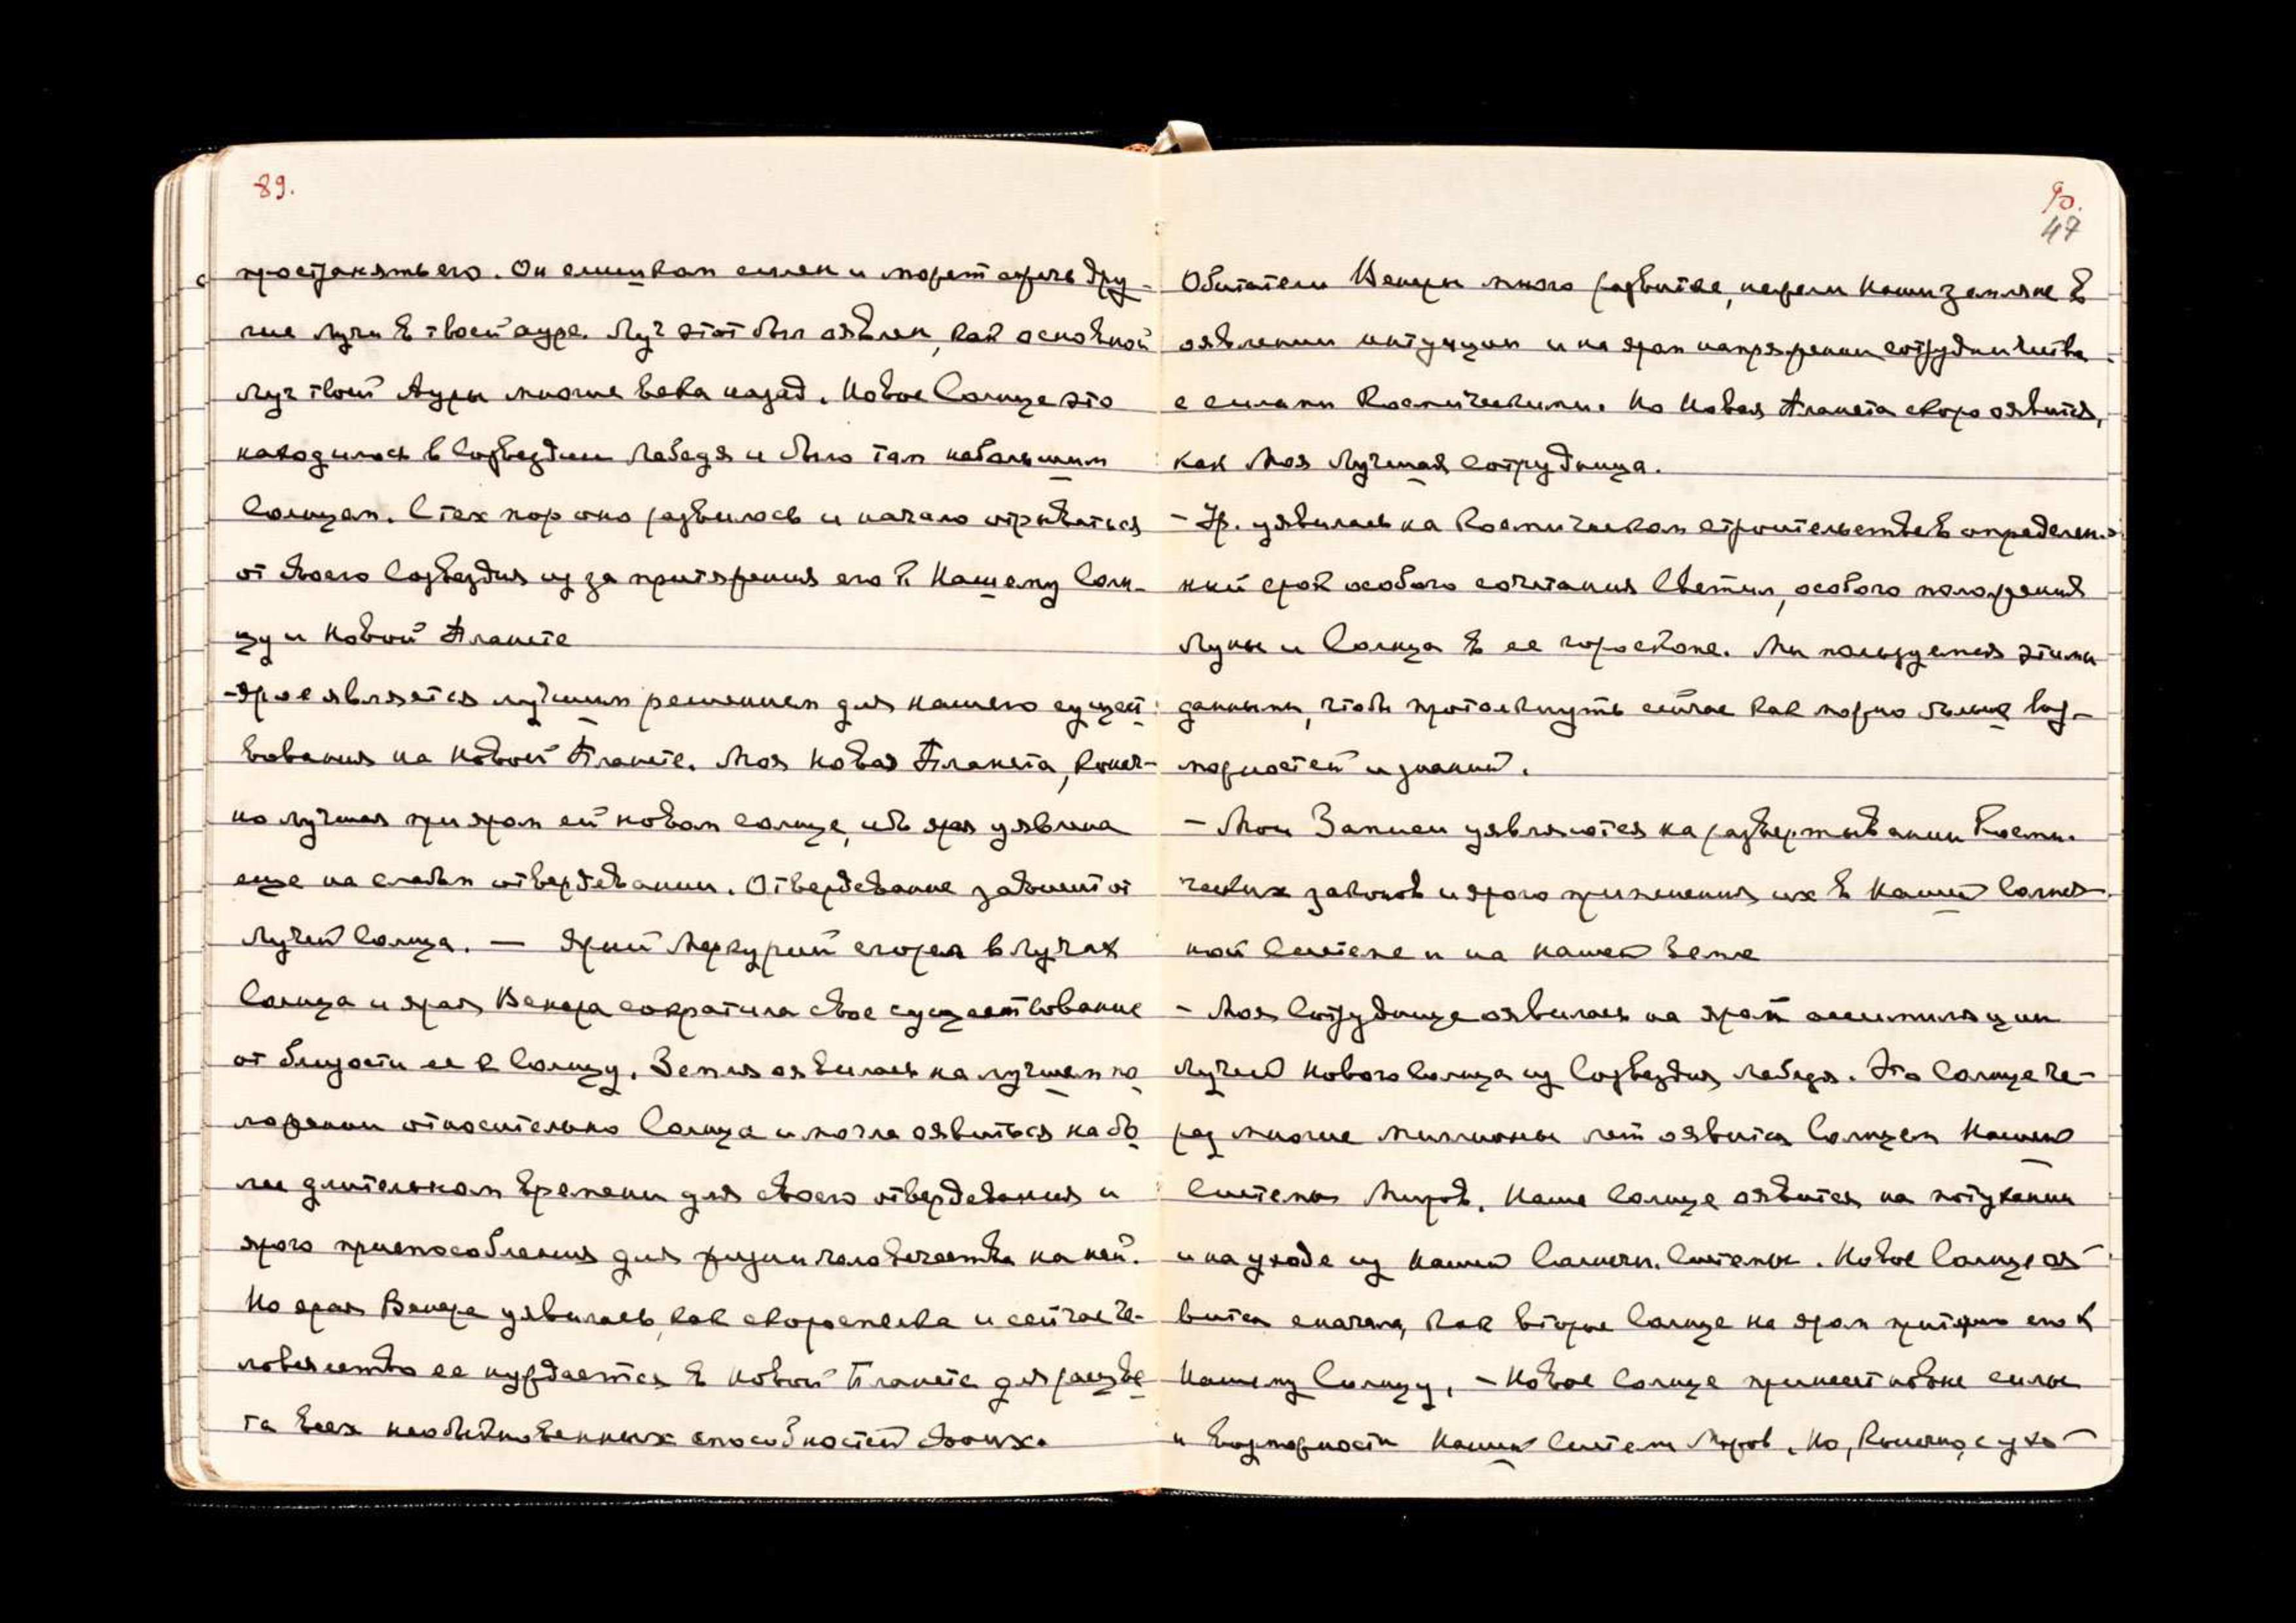 89.
пространять его. Он слишком силен и может сжечь дру-
гие лучи в твоей ауре. Луч этот был оявлен, как основной
луч твоей Ауры многие века назад. Новое Солнце это
находилось в Созвездии Лебедя и было там небольшим
Солнцем. С тех пор оно развилось и начало отрываться
от своего Созвездия из за притяжения его к Нашему Солн-
цу и Новой Планете
- Ярое является лучшим решением для нашего сущест
вования на Новой Планете. Моя Новая Планета, конеч-
но лучшая при яром ей новом солнце, ибо ярая уявлена
еще на слабом отвердевании. Отвердевание зависит от
лучей Солнца. — Ярый Меркурий сгорел в лучах
Солнца и ярая Венера сократила свое существование
от близости ее к Солнцу. Земля оявилась на лучшем по
ложении относительно Солнца и могла оявиться на бо
лее длительном времени для своего отвердевания и
ярого приспособления для жизни человечества на ней.
Но ярая Венера уявилась, как скороспелка и сейчас че-
ловечество ее нуждается в Новой Планете для расцве
та всех необыкновенных способностей своих.
90.
47
Обитатели Венеры много развитее, нежели наши земляне в
оявлении интуиции и на яром напряжении сотрудничества
с силами Космическими. Но Новая Планета скоро оявится,
как Моя Лучшая Сотрудница.
- Ур. уявилась на Космическом строительстве в определен.
ный срок особого сочетания Светил, особого положения
Луны и Солнца в ее гороскопе. Мы пользуемся этими
данными, чтобы протолкнуть сейчас как можно больше воз-
можностей и знаний.
- Мои Записи уявляются на развертывании Косми.
ческих законов и ярого применения их в Нашей Солнеч-
ной Системе и на нашей Земле
- Моя Сотрудница оявилась на ярой ассимиляции
лучей Нового Солнца из Созвездия Лебедя. Это Солнце че-
рез многие миллионы лет оявится Солнцем Нашей
Системы Миров. Наше Солнце оявится на потухании
и на уходе из Нашей Солнечн. Системы. Новое Солнце оя-
вится сначала, как второе Солнце на яром притяж. его к
Нашему Солнцу. - Новое Солнце принесет новые силы
и возможности Нашей Системе Миров. Но, конечно, с ухо-